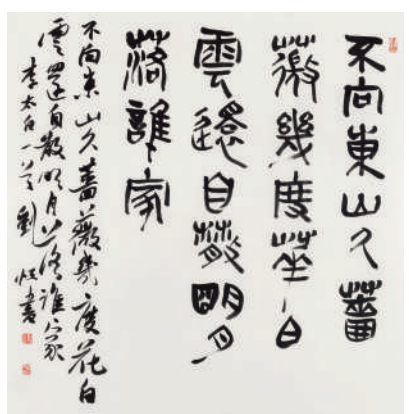 不向東山久薔
薇幾度華白
雲還自散明月
落誰家
不向東山久薔薇幾度花白
雲還自散明月落誰家
李太白一首劉恒書